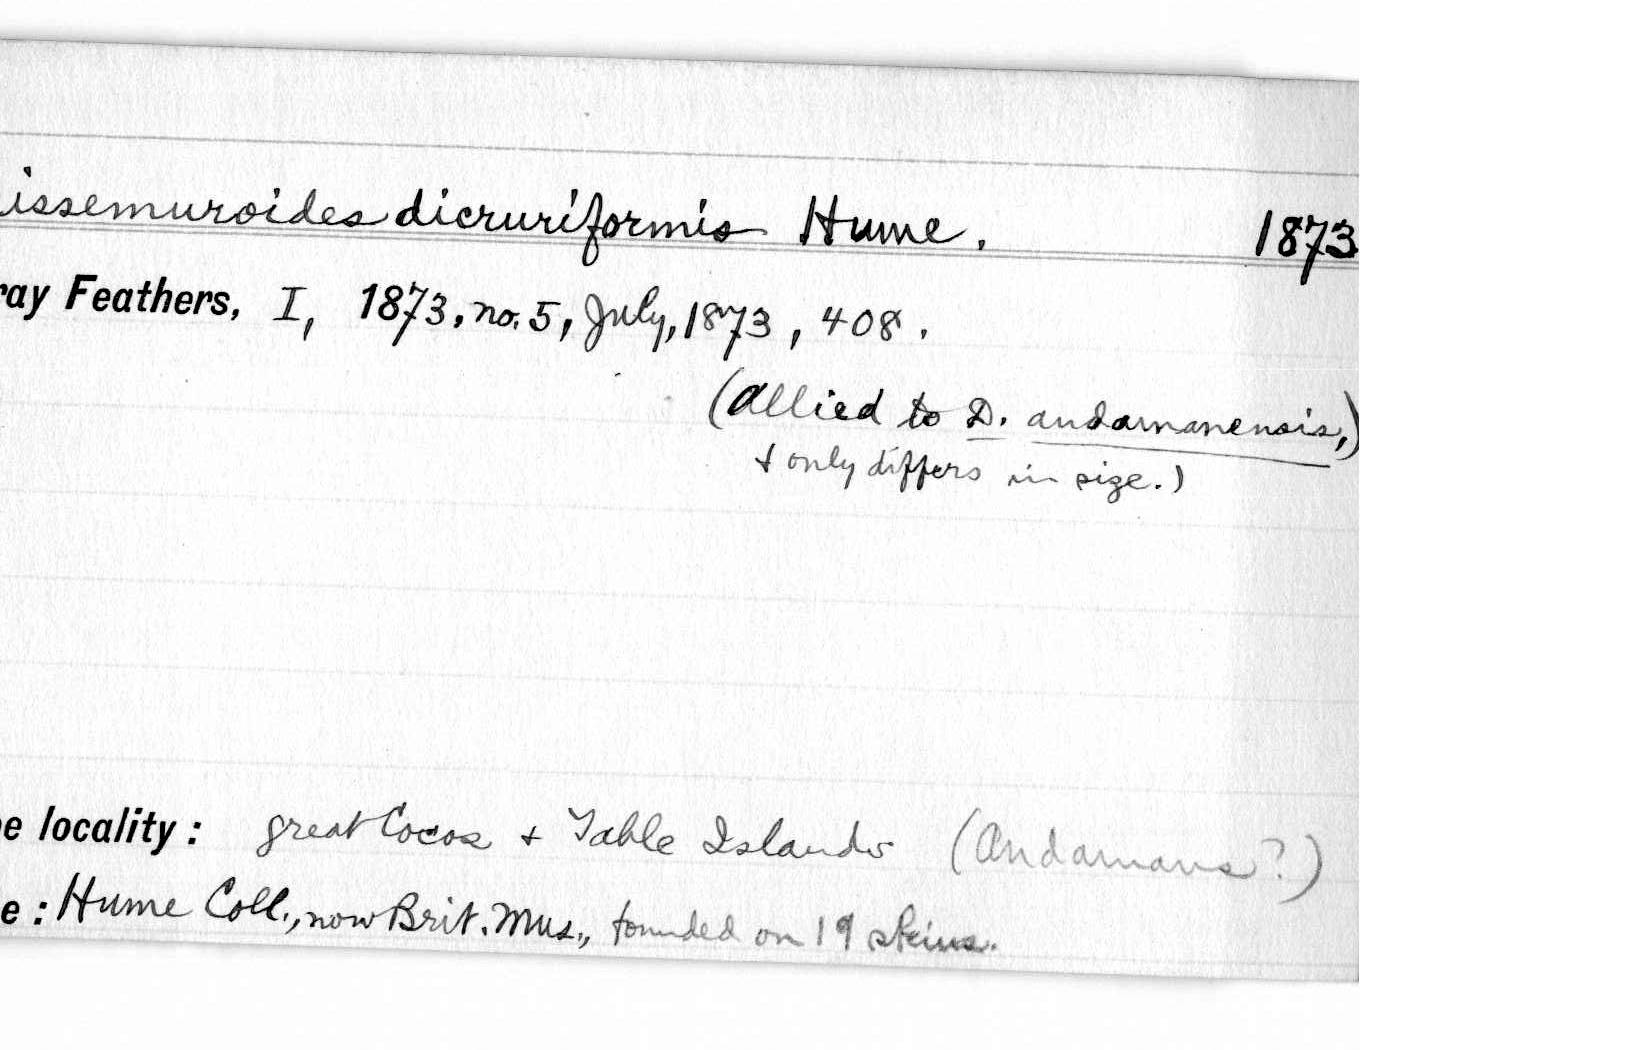 issemuroides dicruriformis Hume. 1873
ray Feathers, I, 1873, no. 5, July, 1873, 408.
(Allied to D. andamanensis,)
+ only differs in size.)
e locality: great Cocos + Table Islands (Andamans?)
e: Hume Coll., now Brit. Mus., founded on 19 skins.